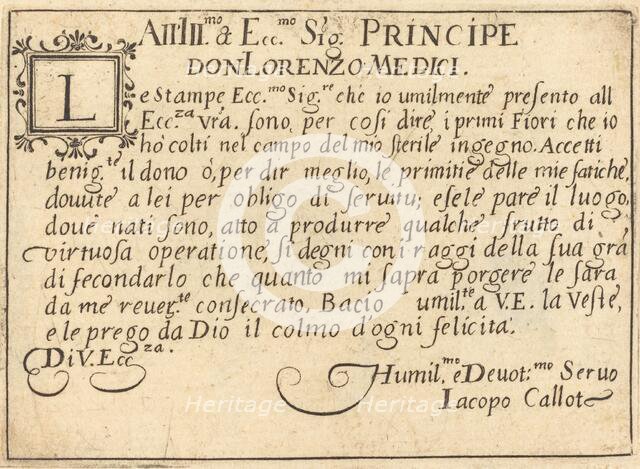 All Ill.mo & Ecc.mo Sig. PRINCIPE
DON LORENZO MEDICI.
Le Stampe Ecc.mo Sig.re che io umilmente presento all
Ecc.za vra. sono, per cosi dire, i primi Fiori che io
ho colti nel campo del mio sterile ingegno. Accetti
benig.te il dono ò, per dir meglio, le primitie delle mie fatiche,
douute a lei per obligo di seruitu; e se le pare il luogo,
doue nati sono, atto a produrre qualche frutto di
virtuosa operatione, si degni con i raggi della sua gra
di fecondarlo che quanto mi sapra porgere le sara
da me reuer.te consecrato, Bacio umil.te a V.E. la Veste,
e le prego da Dio il colmo d'ogni felicita.
Di V. Ecc.za.
Humil.mo e Deuot:mo Seruo
Iacopo Callot
Heritage
Heritage
Heritage
Heritage
Heritage